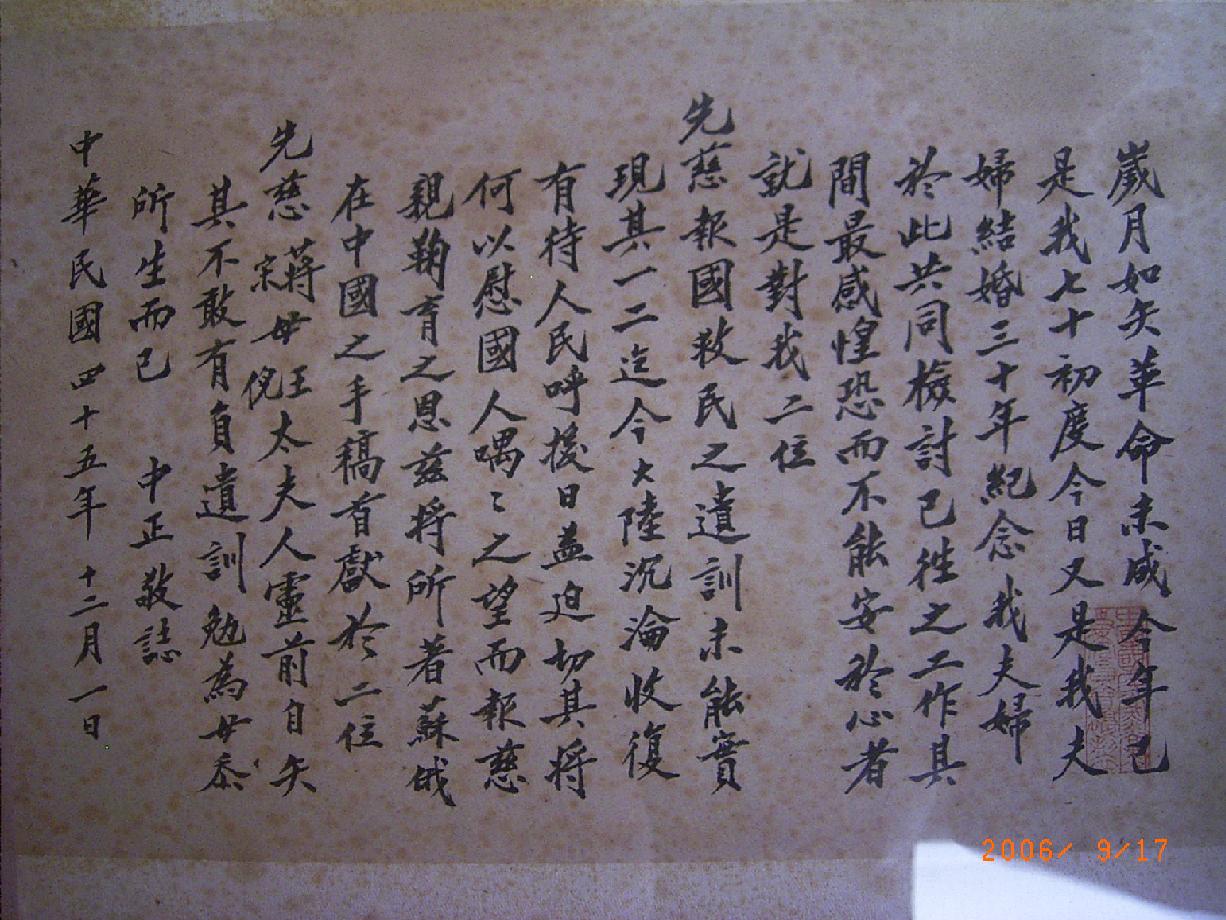 歲月如矢革命未成今年已
是我七十初度今日又是我夫
婦結婚三十年紀念我夫婦
於此共同檢討已往之工作其
間最感惶恐而不能安於心者
就是對我二位
先慈報國救民之遺訓未能實
現其一二迄今大陸沉淪收復
有待人民呼援日益迫切其將
何以慰國人喁〻之望而報慈
親鞠育之恩茲將所著蘇俄
在中國之手稿首獻於二位
先慈 蔣母王 宋母倪 太夫人靈前自矢
其不敢有負遺訓勉為毋忝
所生而已 中正敬誌
中華民國四十五年 十二月一日
2006/ 9/17